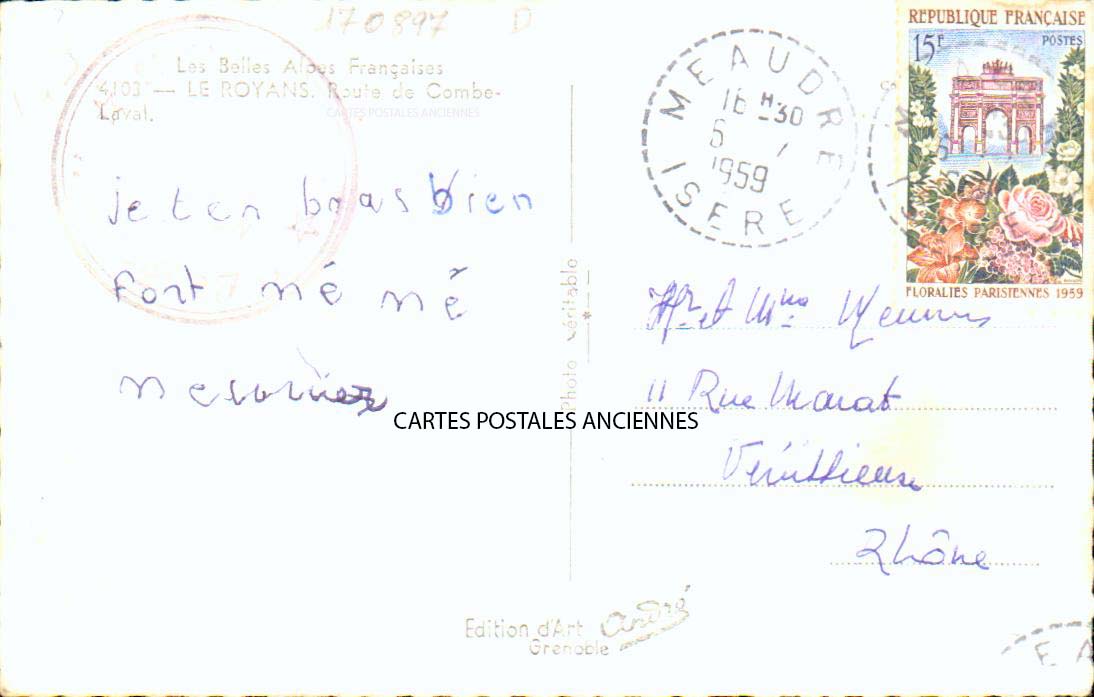 170897 D
Les Belles Alpes Françaises
4103 — LE ROYANS. Route de Combe-
Laval.
CARTES POSTALES ANCIENNES
je ten bras bien
font mé mé
Photo véritable
CARTES POSTALES ANCIENNES
Edition d'Art André
Grenoble
MEAUDRE
16 H 30
6
1959
ISERE
REPUBLIQUE FRANÇAISE
15F POSTES
FLORALIES PARISIENNES 1959
Mr et Mme
11 Rue Marat
Vénissieux
Rhône
EA